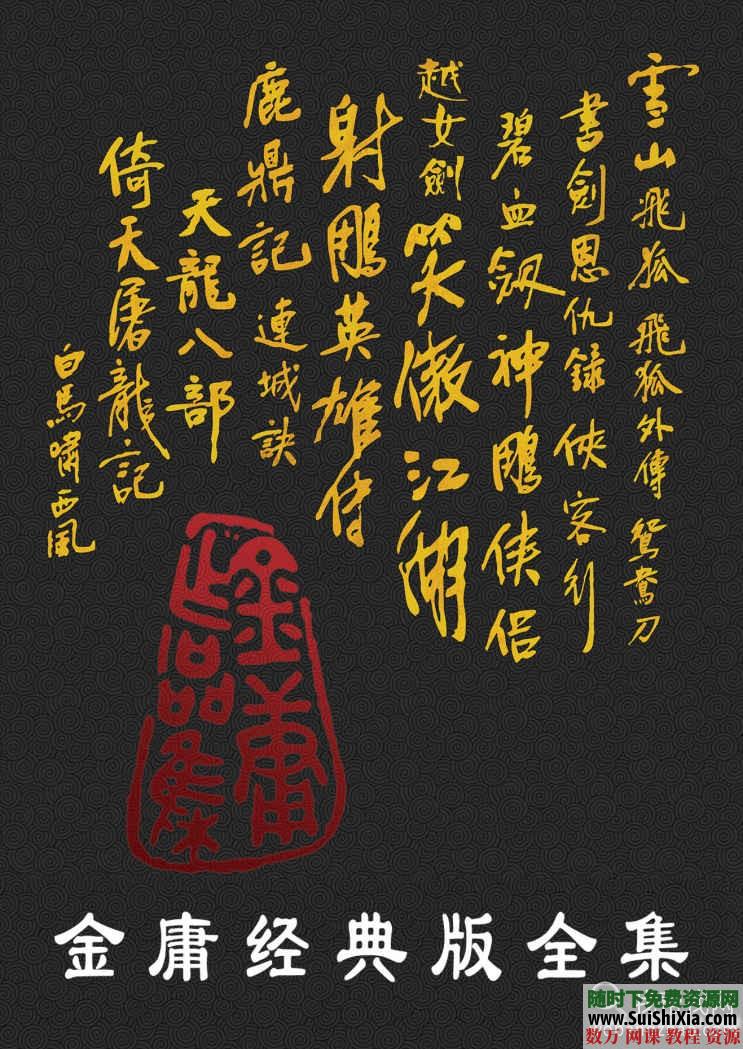 雪山飛狐 飛狐外傳 鴛鴦刀
書劍恩仇錄 俠客行
碧血劍 神鵰俠侶
越女劍 笑傲江湖
射鵰英雄傳
鹿鼎記 連城訣
天龍八部
倚天屠龍記
白馬嘯西風
金庸
作品集
金庸经典版全集
随时下免费资源网
www.SuiShiXia.com
数万 网课 教程 资源